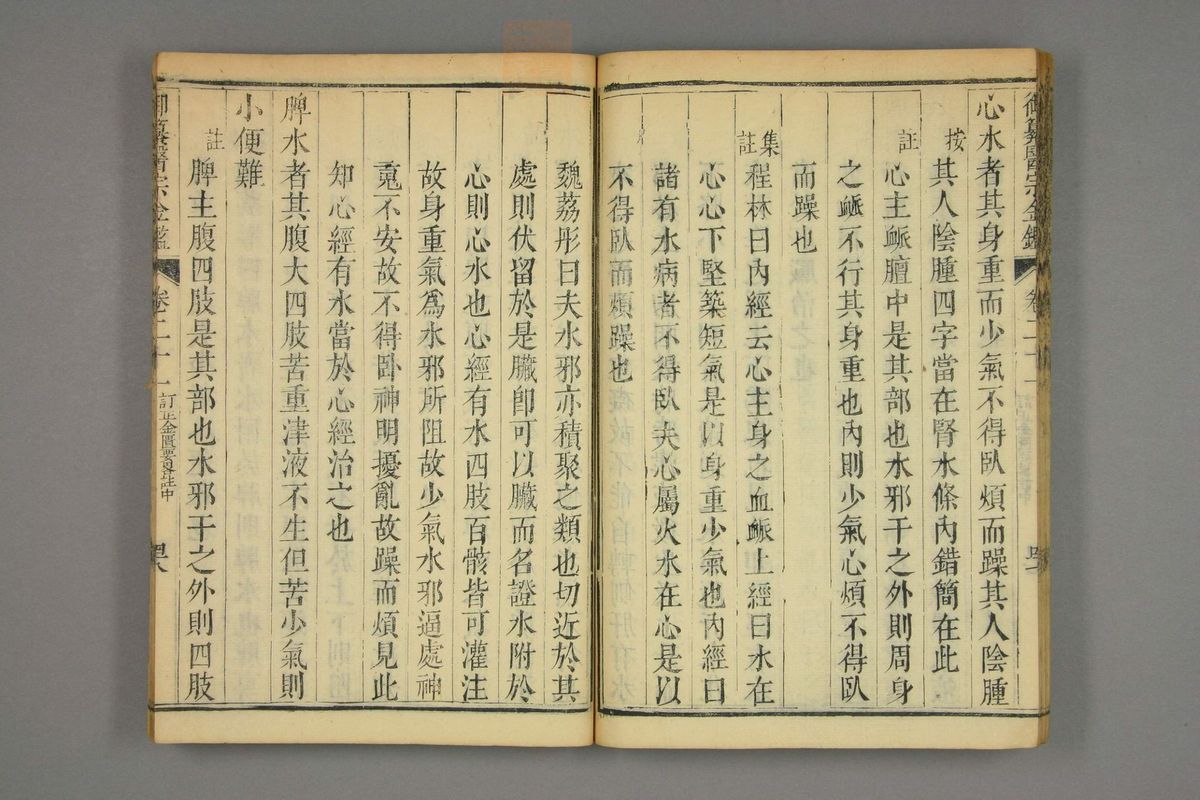 御纂醫宗金鑑 卷二十一
心水者其身重而少氣不得臥煩而躁其人陰腫
按其人陰腫四字當在腎水條內錯簡在此
註心主脈膻中是其部也水邪干之外則周身
之脈不行其身重也內則少氣心煩不得臥
而躁也
集註程林曰內經云心主身之血脈上經曰水在
心心下堅築短氣是以身重少氣也內經曰
諸有水病者不得臥夫心屬火水在心是以
不得臥而煩躁也
魏荔彤曰夫水邪亦積聚之類也切近於其
處則伏留於是臟卽可以臟而名證水附於
心則心水也心經有水四肢百骸皆可灌注
故身重氣爲水邪所阻故少氣水邪逼處神
䰟不安故不得卧神明擾亂故躁而煩見此
知心經有水當於心經治之也
脾水者其腹大四肢苦重津液不生但苦少氣則
小便難
註脾主腹四肢是其部也水邪干之外則四肢
御纂醫宗金鑑 卷二十一 訂正金匱要畧註中